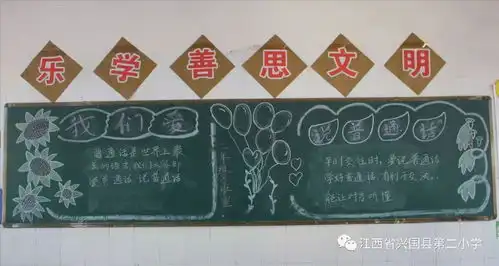 乐学善思文明
我们爱
说普通话
普通话是世界上最
美的语言 我们
说普通话
平时交往时,要说普通话
学好普通话 有利于交流
能让对方听懂
江西省兴国县第二小学